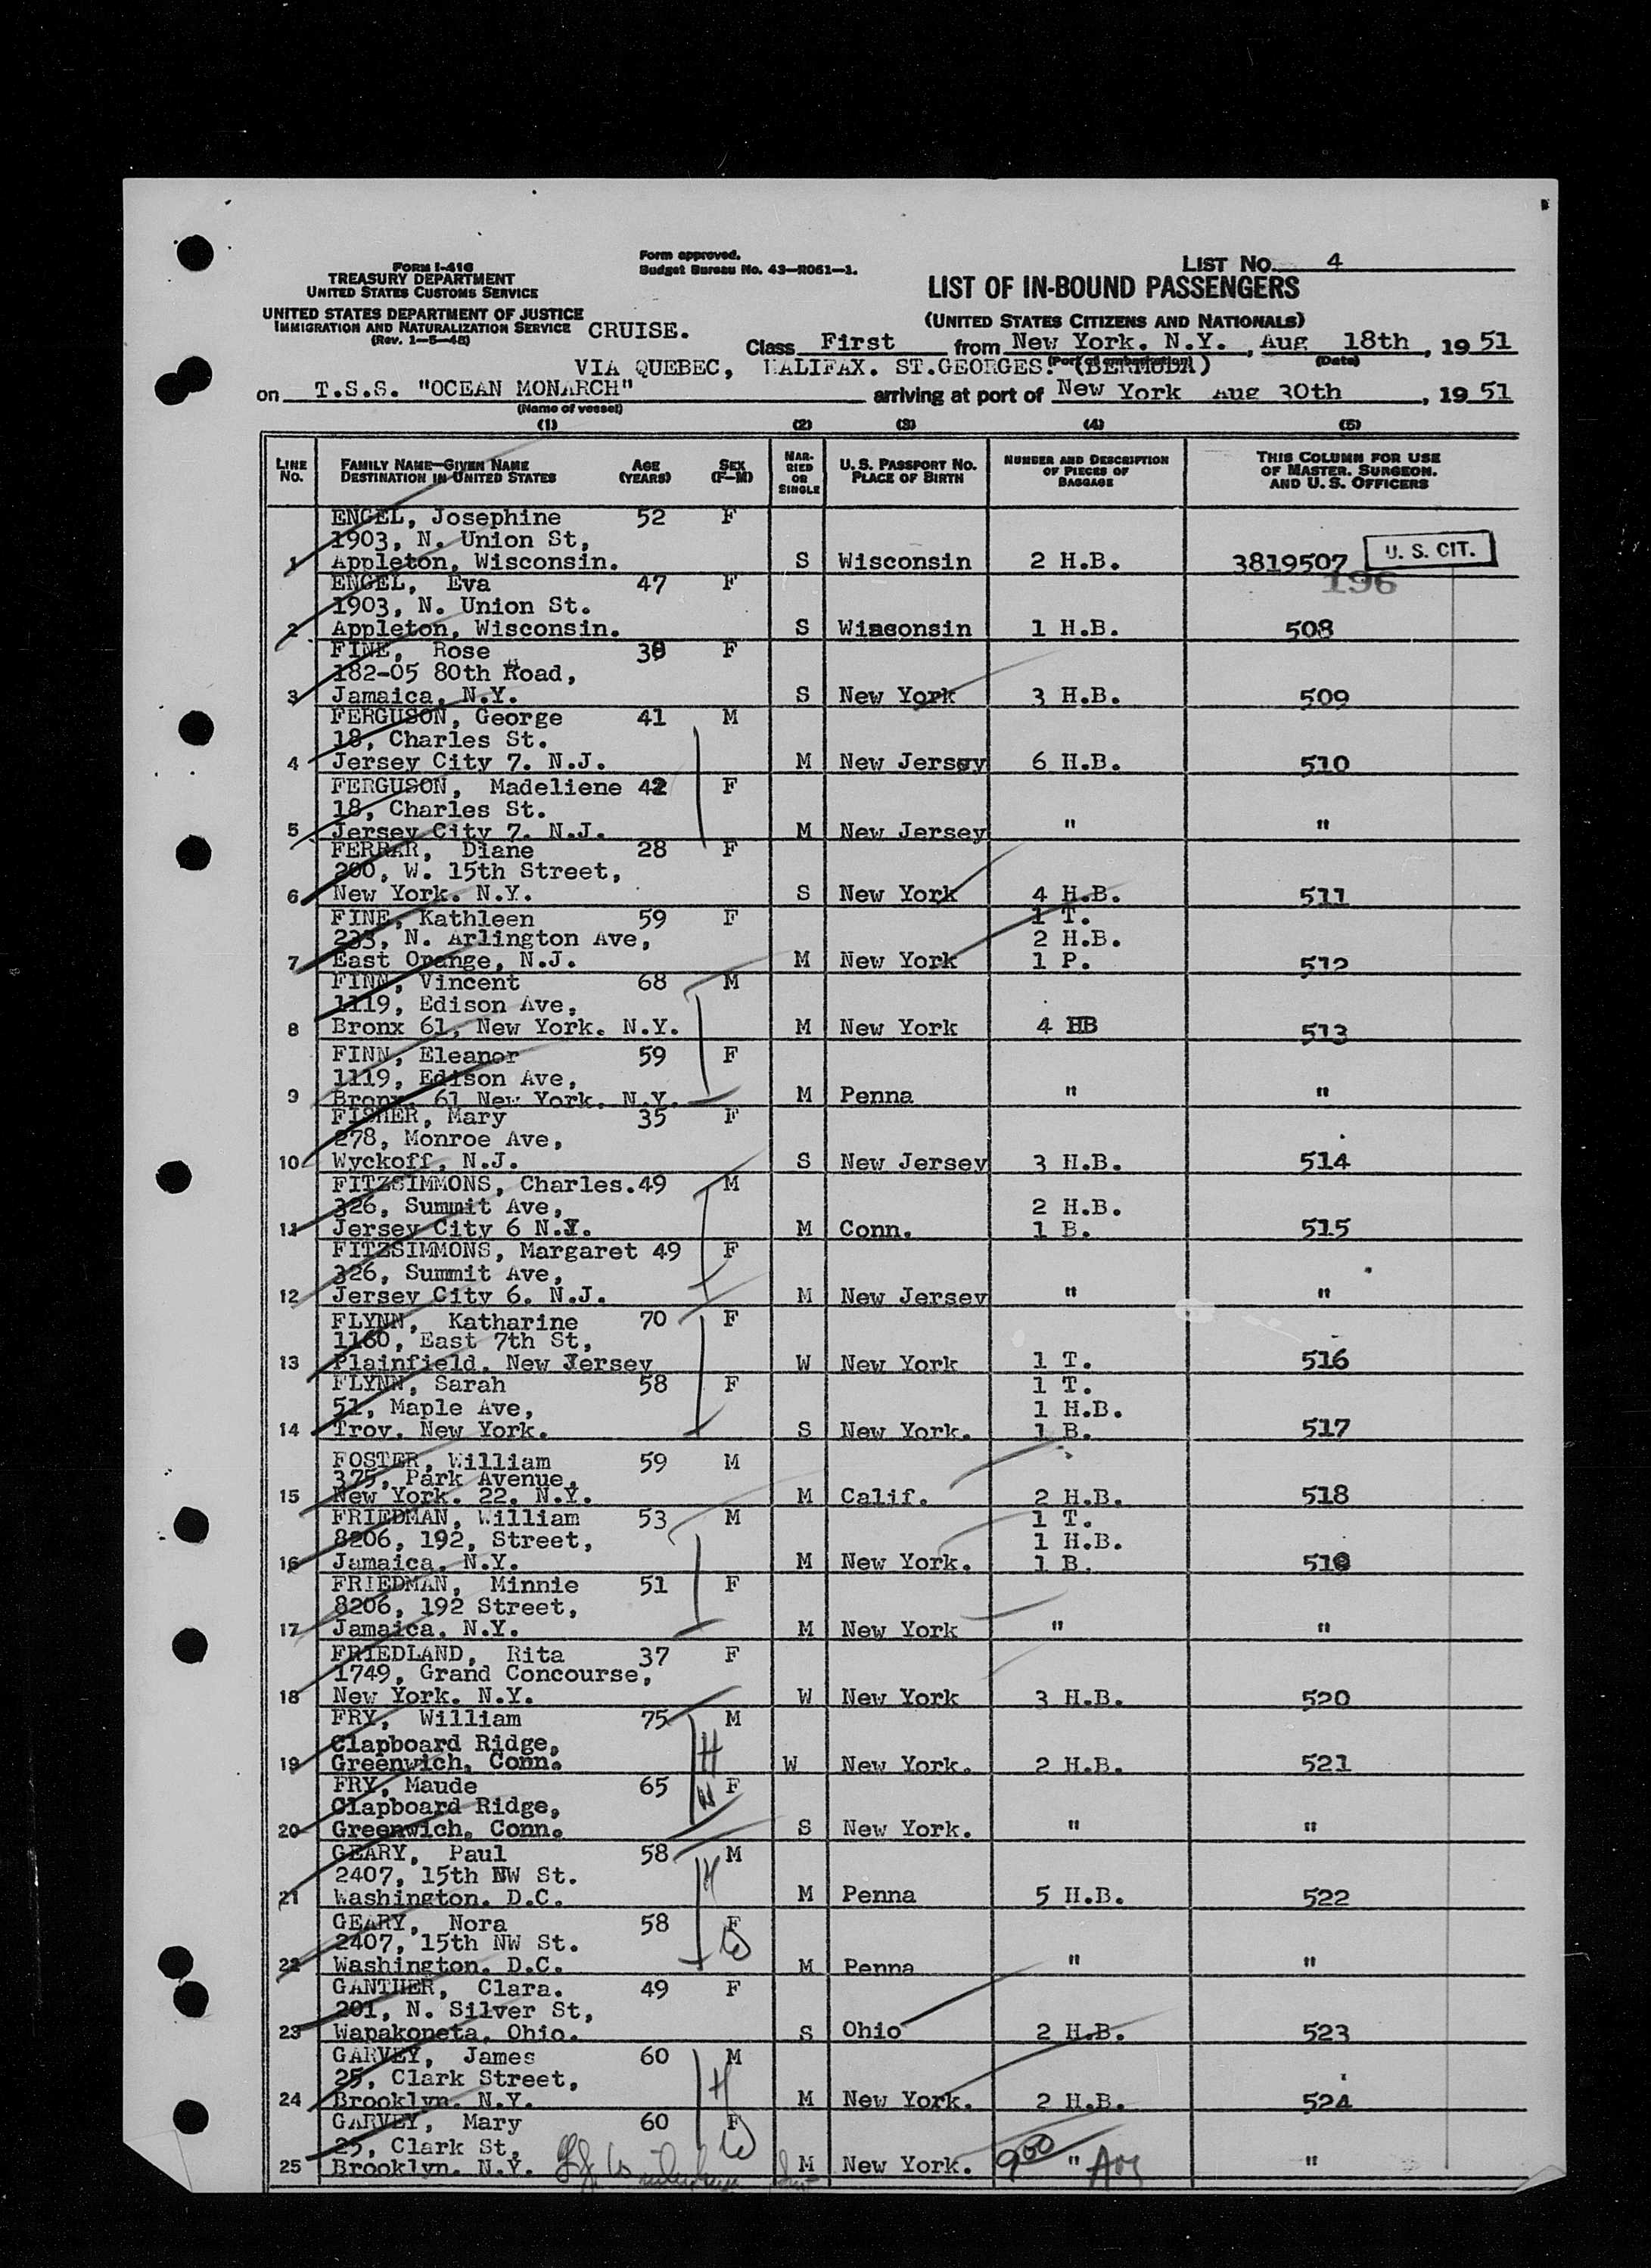 Form approved.
Budget Bureau No. 43—R061—1.
LIST No. 4
FORM I-416
TREASURY DEPARTMENT
UNITED STATES CUSTOMS SERVICE
LIST OF IN-BOUND PASSENGERS
UNITED STATES DEPARTMENT OF JUSTICE
IMMIGRATION AND NATURALIZATION SERVICE
(Rev. 1—5—48)
CRUISE.
(UNITED STATES CITIZENS AND NATIONALS)
Class First from New York. N.Y. , Aug 18th , 19 51
(Port of embarkation) (Date)
VIA QUEBEC, HALIFAX. ST.GEORGES. (BERMUDA)
on T.S.S. "OCEAN MONARCH" arriving at port of New York Aug 30th , 19 51
(Name of vessel)
(1) (2) (3) (4) (5)
LINE No. FAMILY NAME—GIVEN NAME DESTINATION IN UNITED STATES AGE (YEARS) SEX (F—M) MARRIED OR SINGLE U. S. PASSPORT NO. PLACE OF BIRTH NUMBER AND DESCRIPTION OF PIECES OF BAGGAGE THIS COLUMN FOR USE OF MASTER. SURGEON. AND U. S. OFFICERS
ENGEL, Josephine 52 F
1903, N. Union St,
1 Appleton, Wisconsin. S Wisconsin 2 H.B. 3819507 U. S. CIT.
196
ENGEL, Eva 47 F
1903, N. Union St.
2 Appleton, Wisconsin. S Wisconsin 1 H.B. 508
FINE, Rose F
182-05 80th Road,
3 Jamaica, N.Y. S New York 3 H.B. 509
FERGUSON, George 41 M
18, Charles St.
4 Jersey City 7. N.J. M New Jersey 6 H.B. 510
FERGUSON, Madeliene 42 F
18, Charles St.
5 Jersey City 7. N.J. M New Jersey " "
FERRAR, Diane 28 F
200, W. 15th Street,
6 New York. N.Y. S New York 4 H.B. 511
FINE, Kathleen 59 F 1 T.
233, N. Arlington Ave, 2 H.B.
7 East Orange, N.J. M New York 1 P. 512
FINN, Vincent 68 M
1119, Edison Ave,
8 Bronx 61, New York. N.Y. M New York 4 HB 513
FINN, Eleanor 59 F
1119, Edison Ave,
9 Bronx. 61 New York. N.Y. M Penna " "
FISHER, Mary 35 F
278, Monroe Ave,
10 Wyckoff, N.J. S New Jersey 3 H.B. 514
FITZSIMMONS, Charles. 49 M
326, Summit Ave, 2 H.B.
11 Jersey City 6 N.J. M Conn. 1 B. 515
FITZSIMMONS, Margaret 49 F
326, Summit Ave,
12 Jersey City 6. N.J. M New Jersey " "
FLYNN, Katharine 70 F
1160, East 7th St,
13 Plainfield. New Jersey W New York 1 T. 516
FLYNN, Sarah 58 F 1 T.
51, Maple Ave, 1 H.B.
14 Troy. New York. S New York. 1 B. 517
FOSTER, William 59 M
375, Park Avenue,
15 New York. 22. N.Y. M Calif. 2 H.B. 518
FRIEDMAN, William 53 M 1 T.
8206, 192, Street, 1 H.B.
16 Jamaica. N.Y. M New York. 1 B. 519
FRIEDMAN, Minnie 51 F
8206, 192 Street,
17 Jamaica. N.Y. M New York " "
FRIEDLAND, Rita 37 F
1749, Grand Concourse,
18 New York. N.Y. W New York 3 H.B. 520
FRY, William 75 M
Clapboard Ridge,
19 Greenwich, Conn. W New York. 2 H.B. 521
FRY, Maude 65 F
Clapboard Ridge,
20 Greenwich, Conn. S New York. " "
GEARY, Paul 58 M
2407, 15th NW St.
21 Washington. D.C. M Penna 5 H.B. 522
GEARY, Nora 58 F
2407, 15th NW St.
22 Washington. D.C. M Penna " "
GANTHER, Clara. 49 F
201, N. Silver St,
23 Wapakoneta, Ohio. S Ohio 2 H.B. 523
GARVEY, James 60 M
25, Clark Street,
24 Brooklyn. N.Y. M New York. 2 H.B. 524
GARVEY, Mary 60 F
25, Clark St,
25 Brooklyn. N.Y. M New York. 9 00 " "